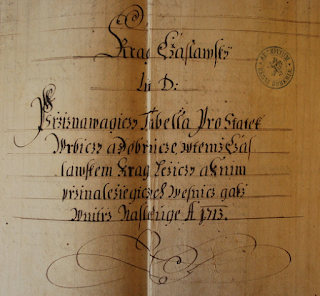 Krag Czaslawsky
In D:
Prziznawagicz Tabella Pro Statek
Wrbicze a Dobrucze, wtemż Czas
lawskem Krag Ležicz a knim
przinaležiegiczych wesnicz gakž
wnitrz Nasleduge A 1713.